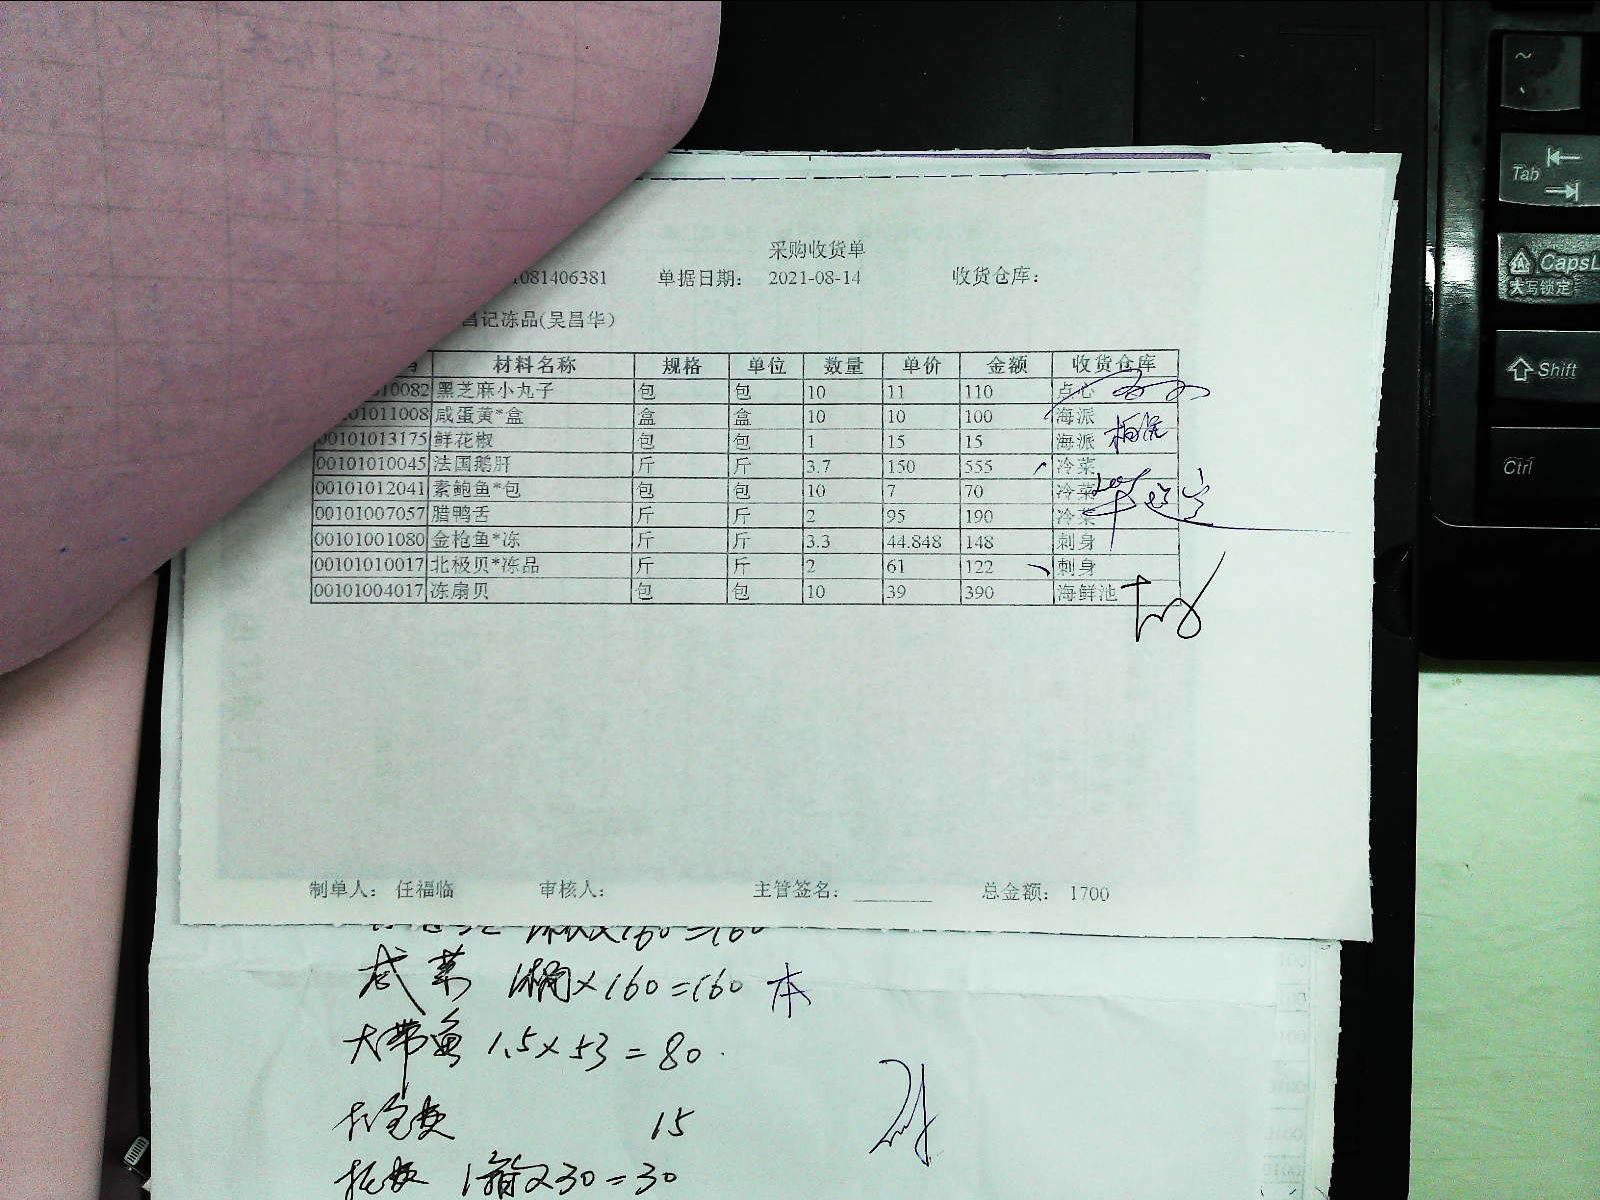 采购收货单
1081406381 单据日期: 2021-08-14 收货仓库:
昌记冻品(吴昌华)
材料名称 规格 单位 数量 单价 金额 收货仓库
0082 黑芝麻小丸子 包 包 10 11 110 点心
01011008 咸蛋黄*盒 盒 盒 10 10 100 海派
00101013175 鲜花椒 包 包 1 15 15 海派
00101010045 法国鹅肝 斤 斤 3.7 150 555 冷菜
00101012041 素鲍鱼*包 包 包 10 7 70 冷菜
00101007057 腊鸭舌 斤 斤 2 95 190 冷菜
00101001080 金枪鱼*冻 斤 斤 3.3 44.848 148 刺身
00101010017 北极贝*冻品 斤 斤 2 61 122 刺身
00101004017 冻扇贝 包 包 10 39 390 海鲜池
制单人: 任福临 审核人: 主管签名: 总金额: 1700
1桶×160=160 本
大带鱼 1.5×53=80
15
1箱×30=30
~
Tab
CapsL
大写锁定
Shift
Ctrl